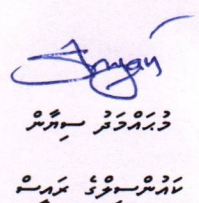 މުޙައްމަދު ސިޔާން
ކައުންސިލްގެ ރައީސް